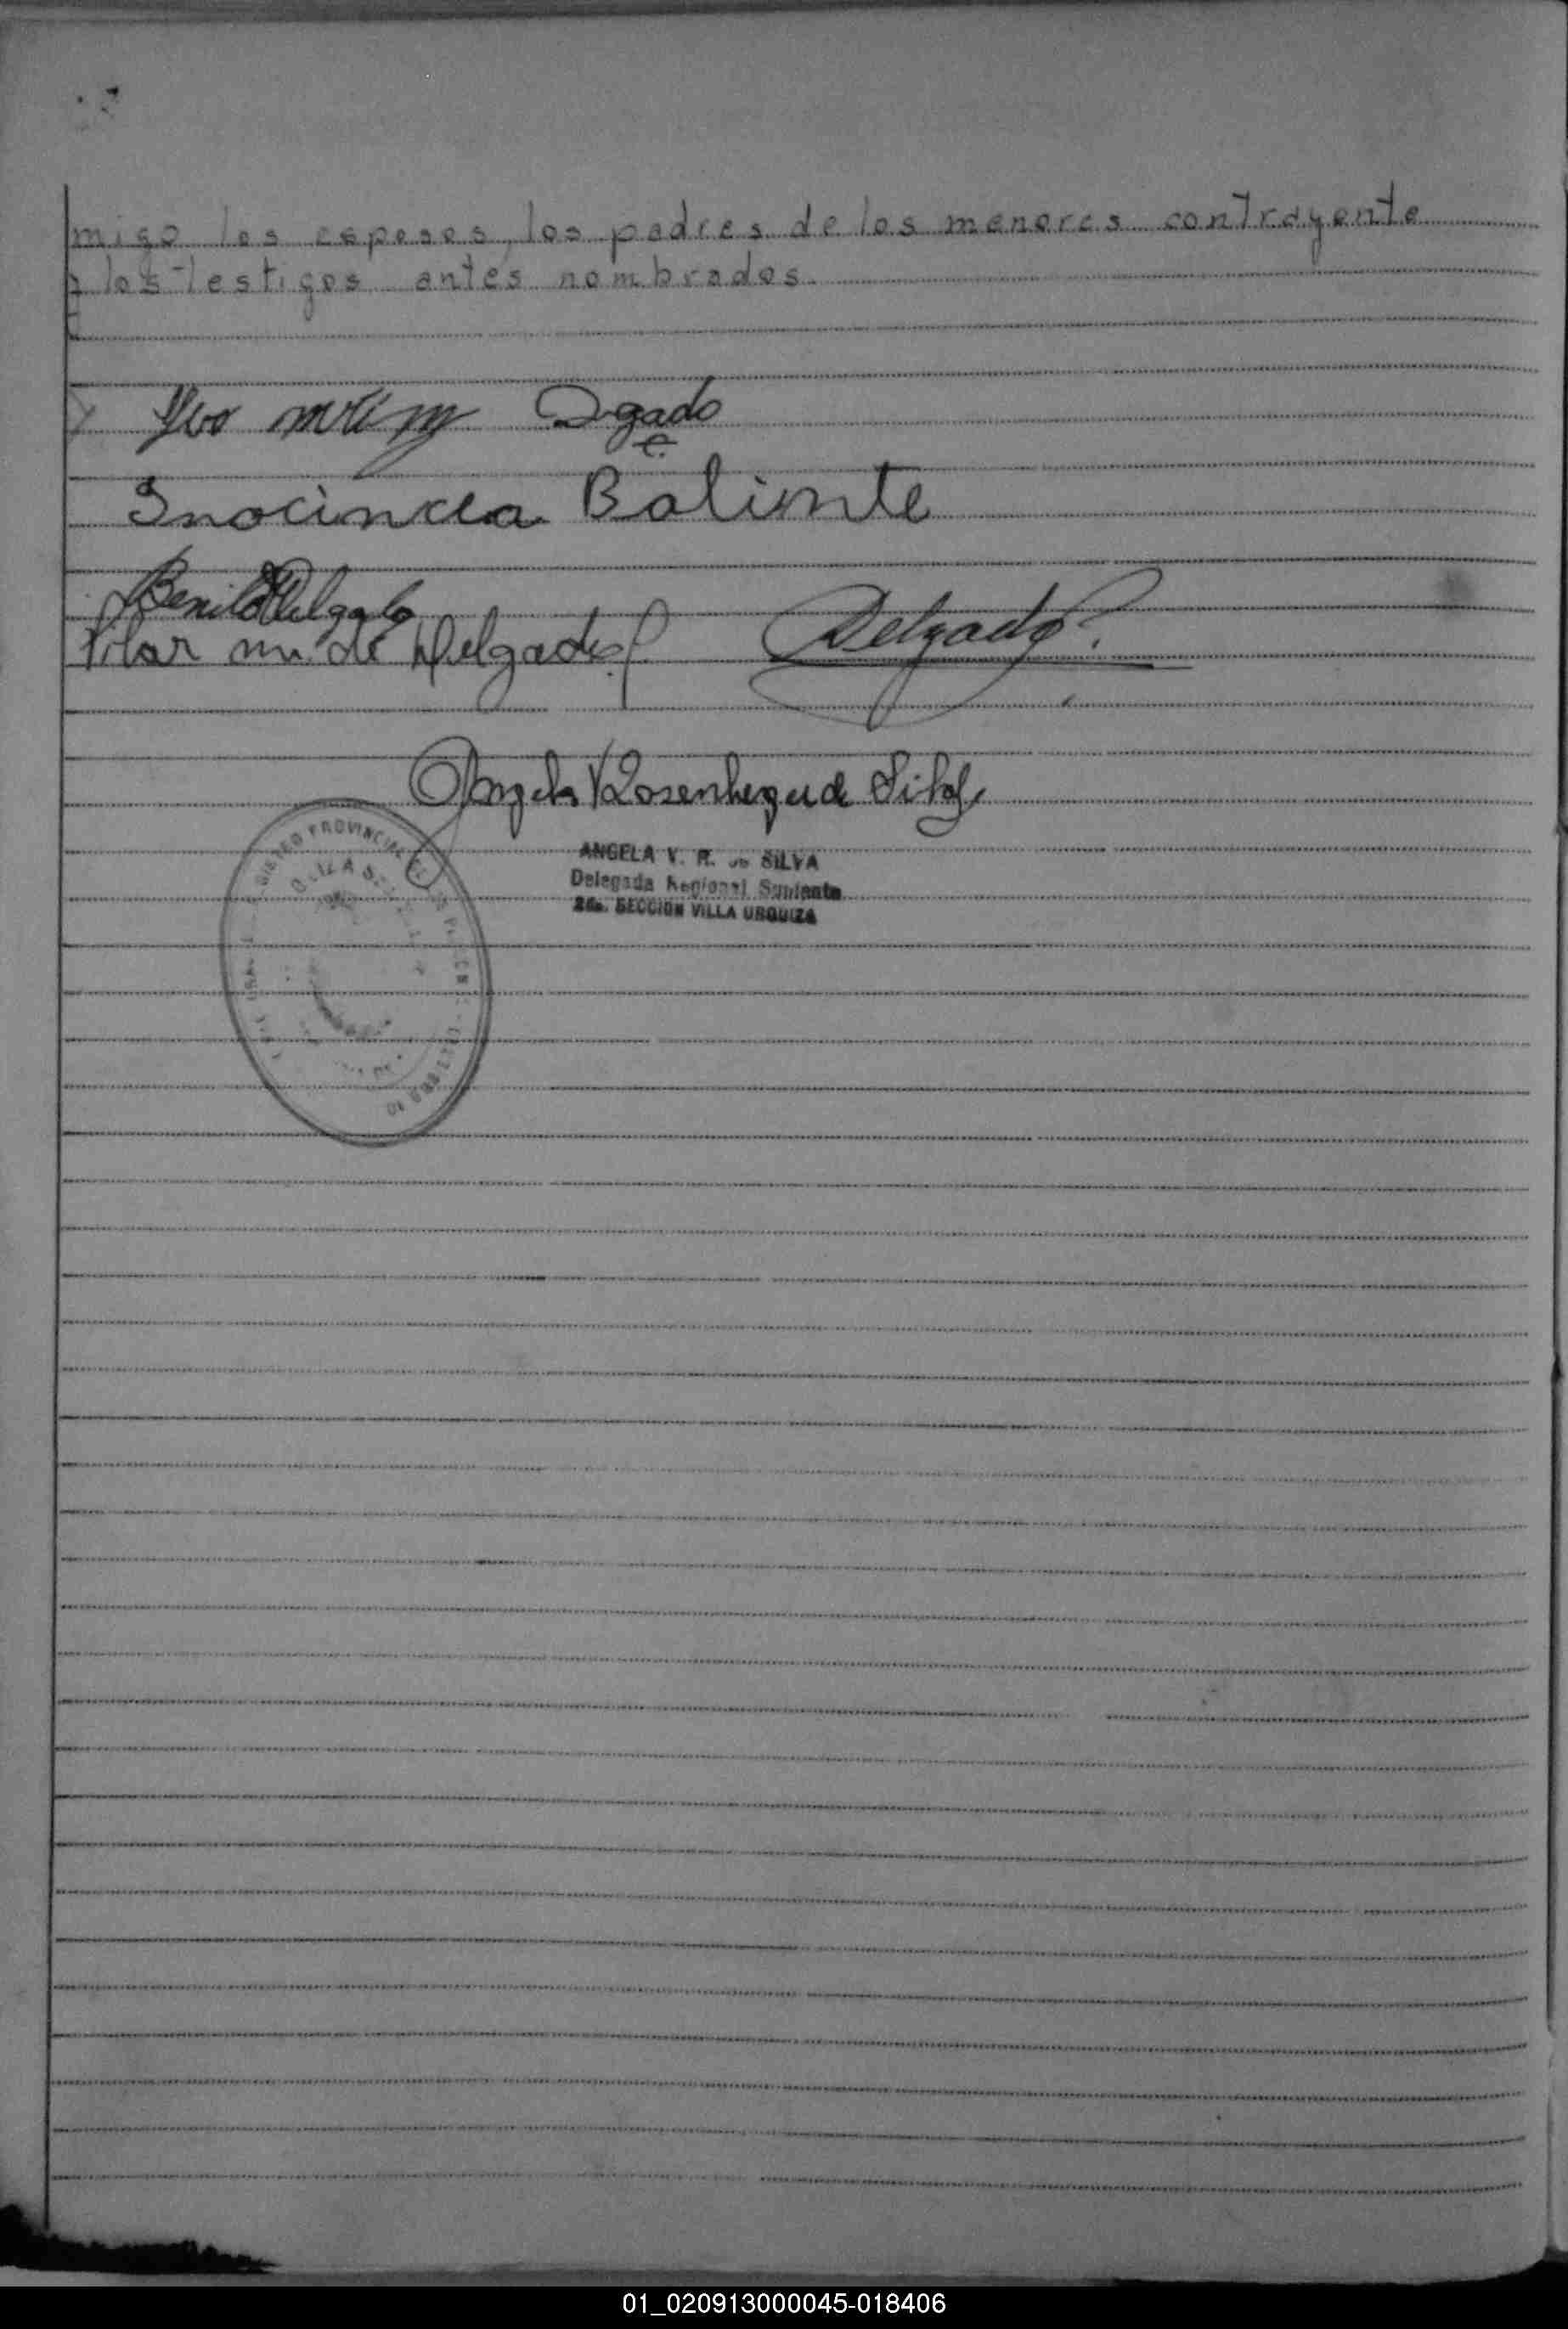 migo los esposos, los padres de los menores contrayente
y los testigos antes nombrados.
Inocincia Balinte
Benito Delgado
Pilar m. de Delgado
Delgado
Angela V Rosenhegue de Silva
ANGELA V. R. de SILVA
Delegada Regional Suplente
SECCION VILLA URQUIZA
PROVINCIAL
01_020913000045-018406